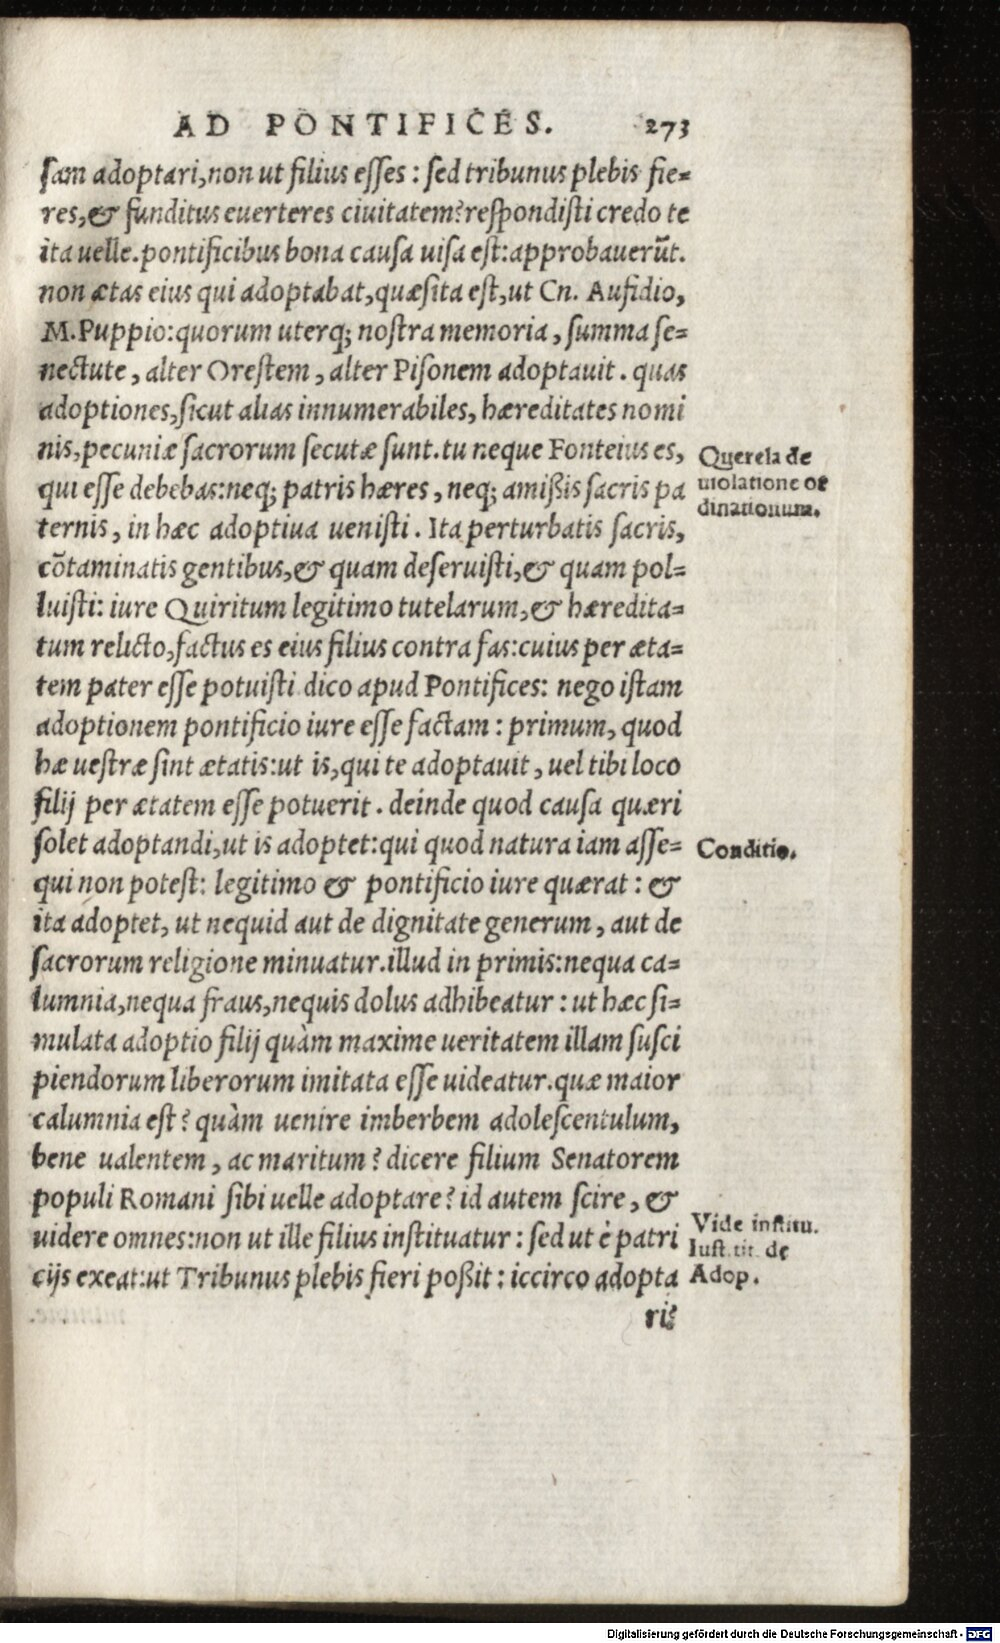 AD PONTIFICES. 273
ſam adoptari, non ut filius eſſes: ſed tribunus plebis fie=
res, & funditus euerteres ciuitatem? reſpondiſti credo te
ita uelle. pontificibus bona cauſa uiſa eſt: approbauerūt.
non ætas eius qui adoptabat, quæſita eſt, ut Cn. Aufidio,
M. Puppio: quorum uterq; noſtra memoria, ſumma ſe=
nectute, alter Oreſtem, alter Piſonem adoptauit. quas
adoptiones, ſicut alias innumerabiles, hæreditates nomi
nis, pecuniæ ſacrorum ſecutæ ſunt. tu neque Fonteius es,
qui eſſe debebas: neq; patris hæres, neq; amißis ſacris pa
ternis, in hæc adoptiua ueniſti. Ita perturbatis ſacris,
cōtaminatis gentibus, & quam deſeruiſti, & quam pol=
luiſti: iure Quiritum legitimo tutelarum, & hæredita=
tum relicto, factus es eius filius contra fas: cuius per æta=
tem pater eſſe potuiſti dico apud Pontifices: nego iſtam
adoptionem pontificio iure eſſe factam: primum, quod
hæ ueſtræ ſint ætatis: ut is, qui te adoptauit, uel tibi loco
filij per ætatem eſſe potuerit. deinde quod cauſa quæri
ſolet adoptandi, ut is adoptet: qui quod natura iam aſſe=
qui non poteſt: legitimo & pontificio iure quærat: &
ita adoptet, ut nequid aut de dignitate generum, aut de
ſacrorum religione minuatur. illud in primis: nequa ca=
lumnia, nequa fraus, nequis dolus adhibeatur: ut hæc ſi=
mulata adoptio filij quàm maxime ueritatem illam ſuſci
piendorum liberorum imitata eſſe uideatur. quæ maior
calumnia eſt? quàm uenire imberbem adoleſcentulum,
bene ualentem, ac maritum? dicere filium Senatorem
populi Romani ſibi uelle adoptare? id autem ſcire, &
uidere omnes: non ut ille filius inſtituatur: ſed ut è patri
cijs exeat: ut Tribunus plebis fieri poßit: iccirco adopta
ri?
Querela de
uiolatione or
dinationum.
Conditio.
Vide inſtitu.
Iuſt. tit. de
Adop.
Digitalisierung gefördert durch die Deutsche Forschungsgemeinschaft - DFG